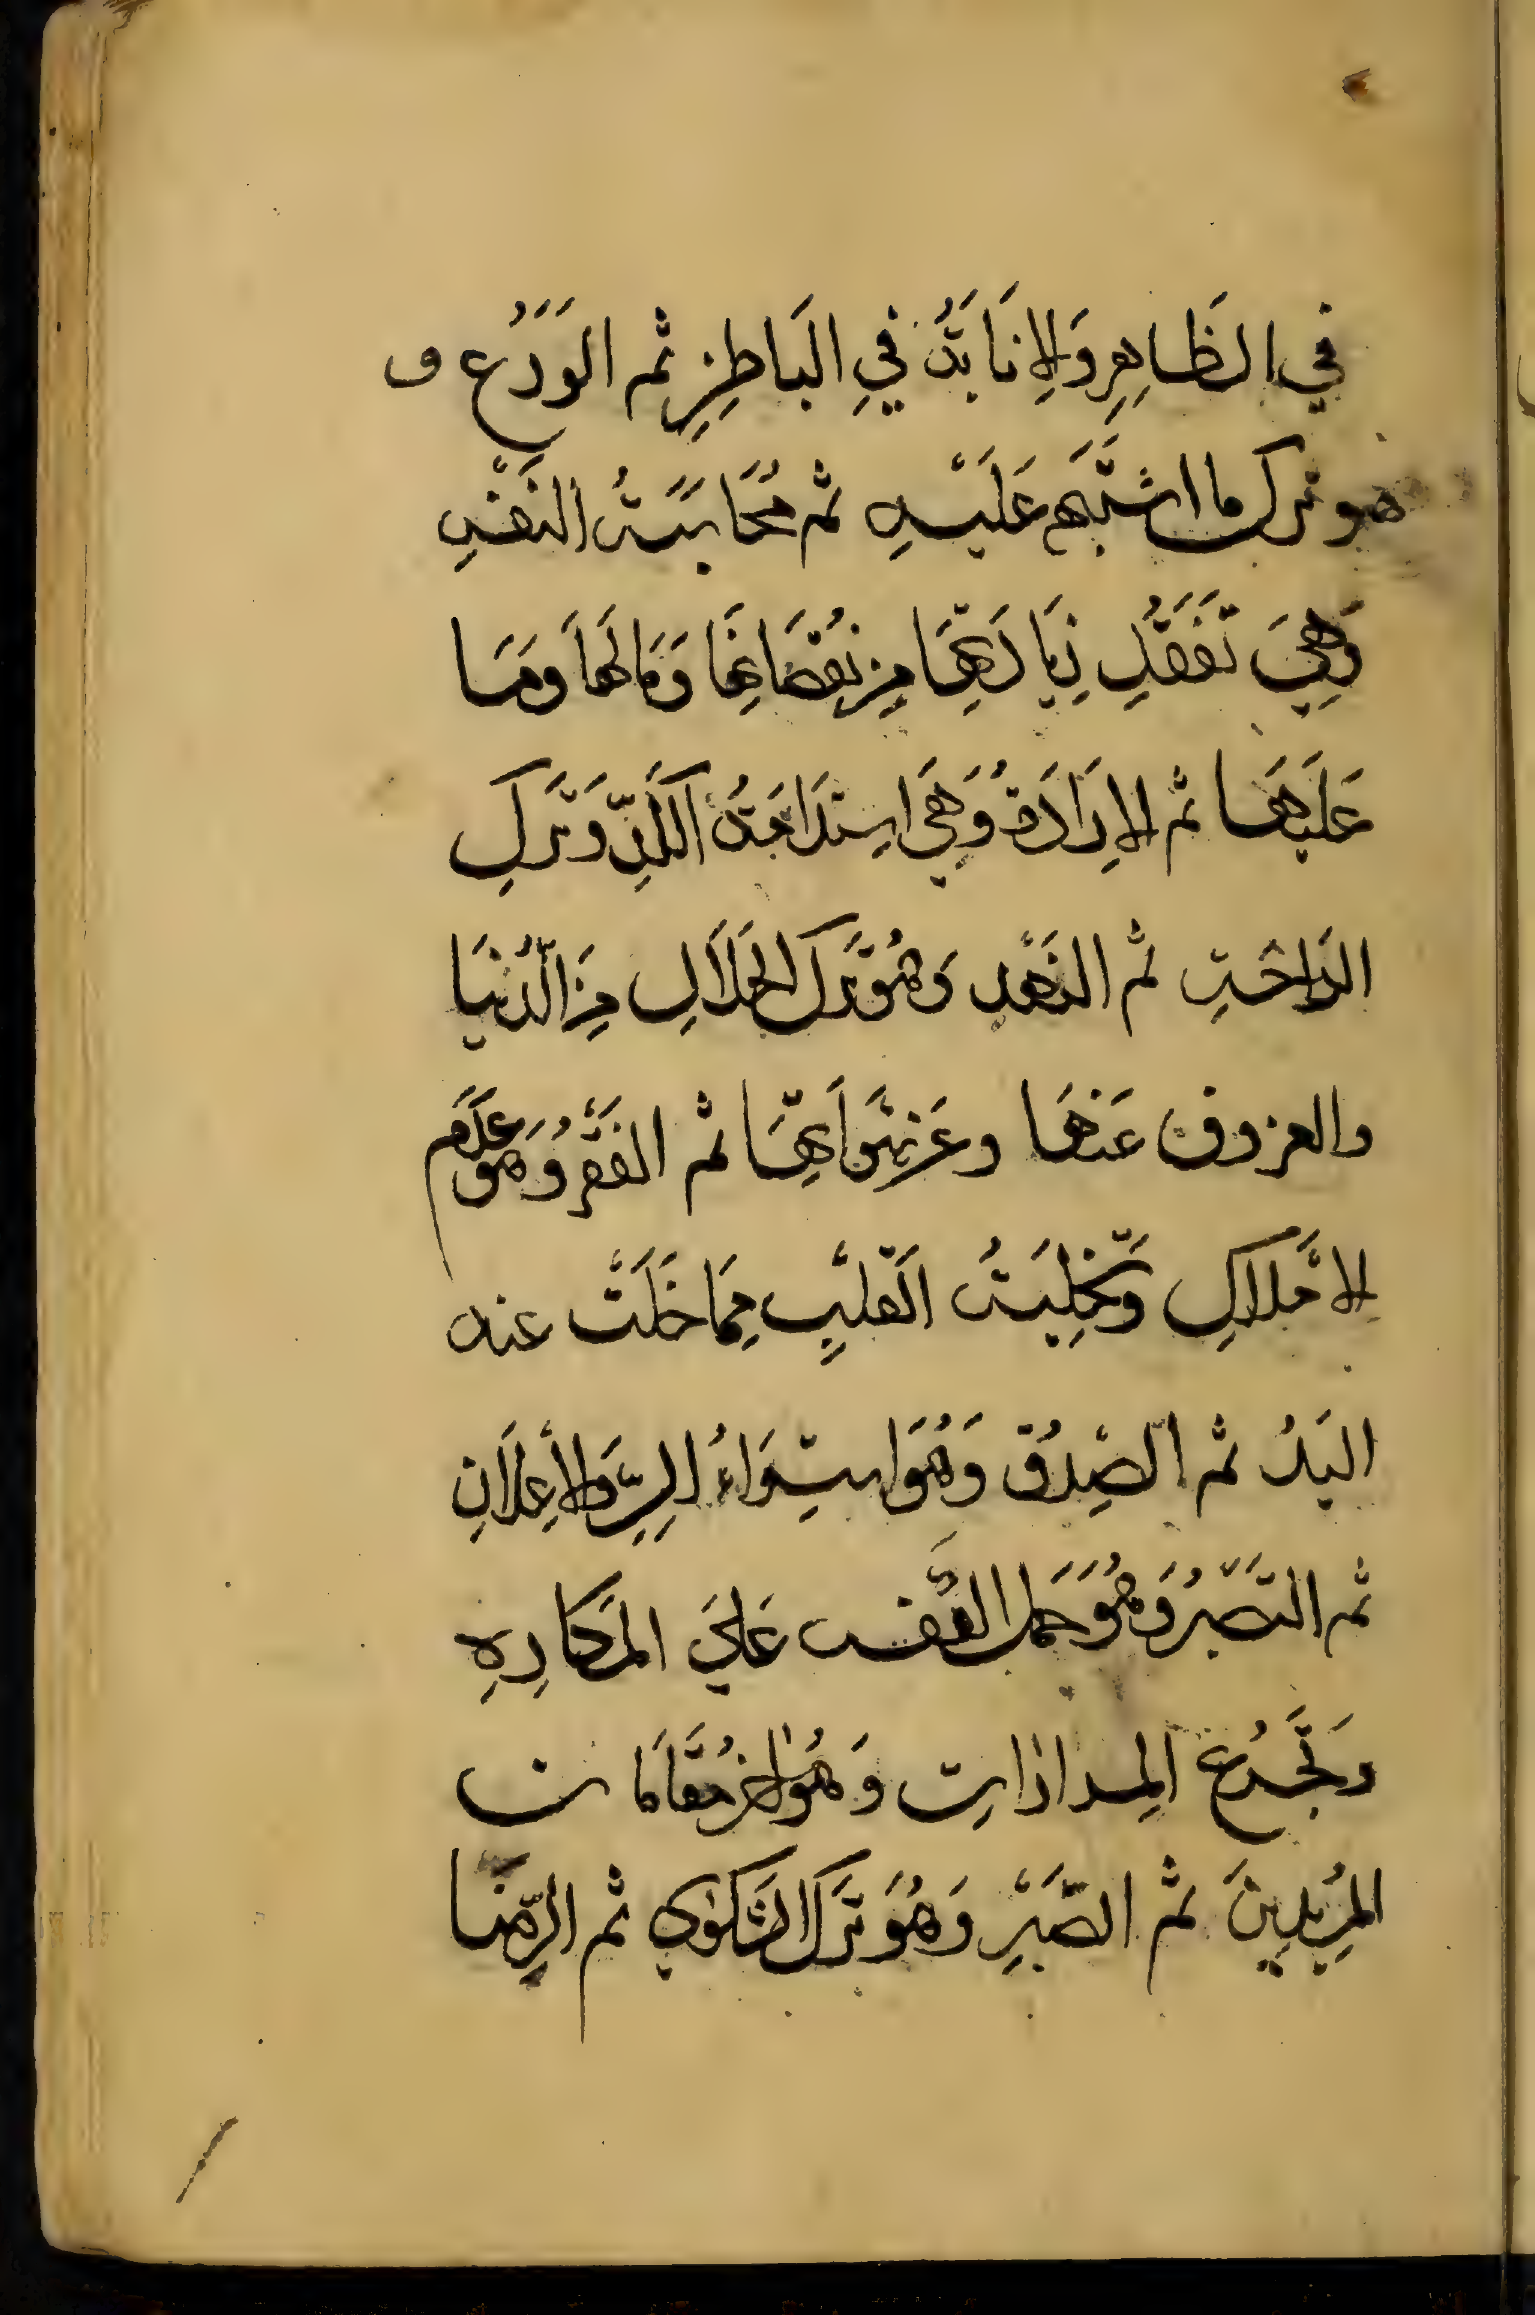 في الظَاهِرِ وَالإنَابَةُ فيِ البَاطِنِ ثم الوَرَعُ و
هو ترك ما اشتَبَه عَلَيْهِ ثم مُحَاسَبَةُ النَفْسِ
وَهِيَ تَفَقُدِ زِيَادَتِهَا مِن نُقصَانِهَا وَمَالَهَا وَمَا
عَلَيهَا ثم الإرَادَةُ وَهِيَ استِدَامَةُ الكَدِّ وَتَركِ
الرَاحَةِ ثم الزهْد وَهُوَ تَرك الحَلَالِ مِنَ الدُنيَا
والعزوف عَنهَا وعَن شَهواتِهَا ثم الفَقْرُ وَهوَ عَدَم
الأملاكِ وَتَخلِيَةُ القَلْبِ مِمَا خَلَتْ عنه
اليَدُ ثم الصِدْقُ وَهُوَ استِوَاءُ السِرِّ وَالأعِلَانِ
ثم التَصَبّرُ وَهُوَ حَمل النَفْس عَليَ المَكَارِهِ
وَتَجَرُع المِرارَاتِ وَهُوَ اخر مُقَامَات
المُرِيدِينَ ثم الصَّبْرِ وَهُوَ تَركَ الشَكوَي ثم الرِّضَا